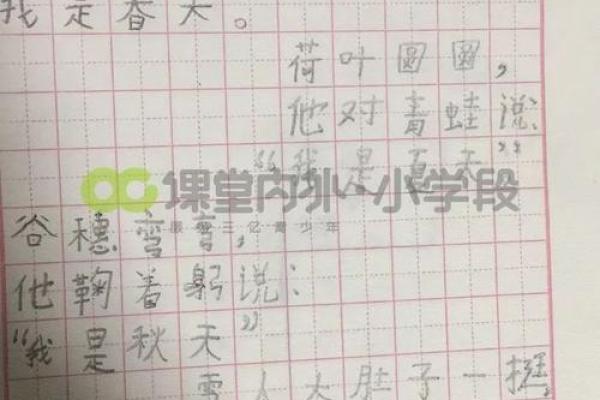 我是春天。
荷叶圆圆，
他对青蛙说：
“我是夏天”
课堂内外小学段
服务三亿青少年
谷穗弯弯，
他鞠着躬说：
“我是秋天”
雪人大肚子一挺，